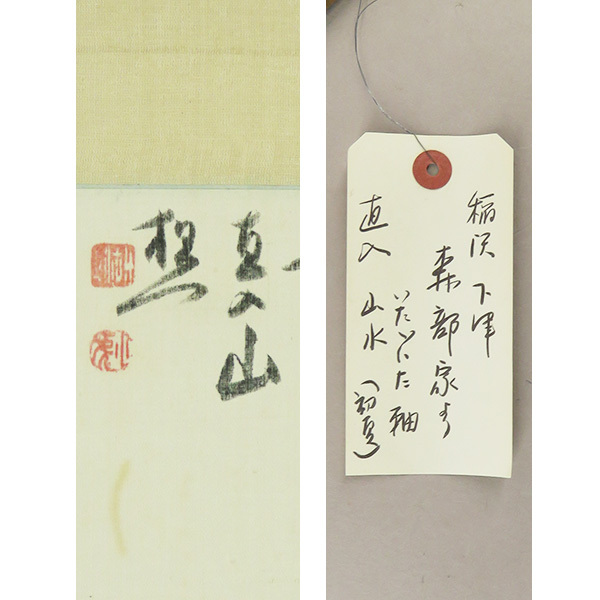 直入山
樵
稲沢 下津
森部家より
いただいた軸
直入 山水 (初夏)